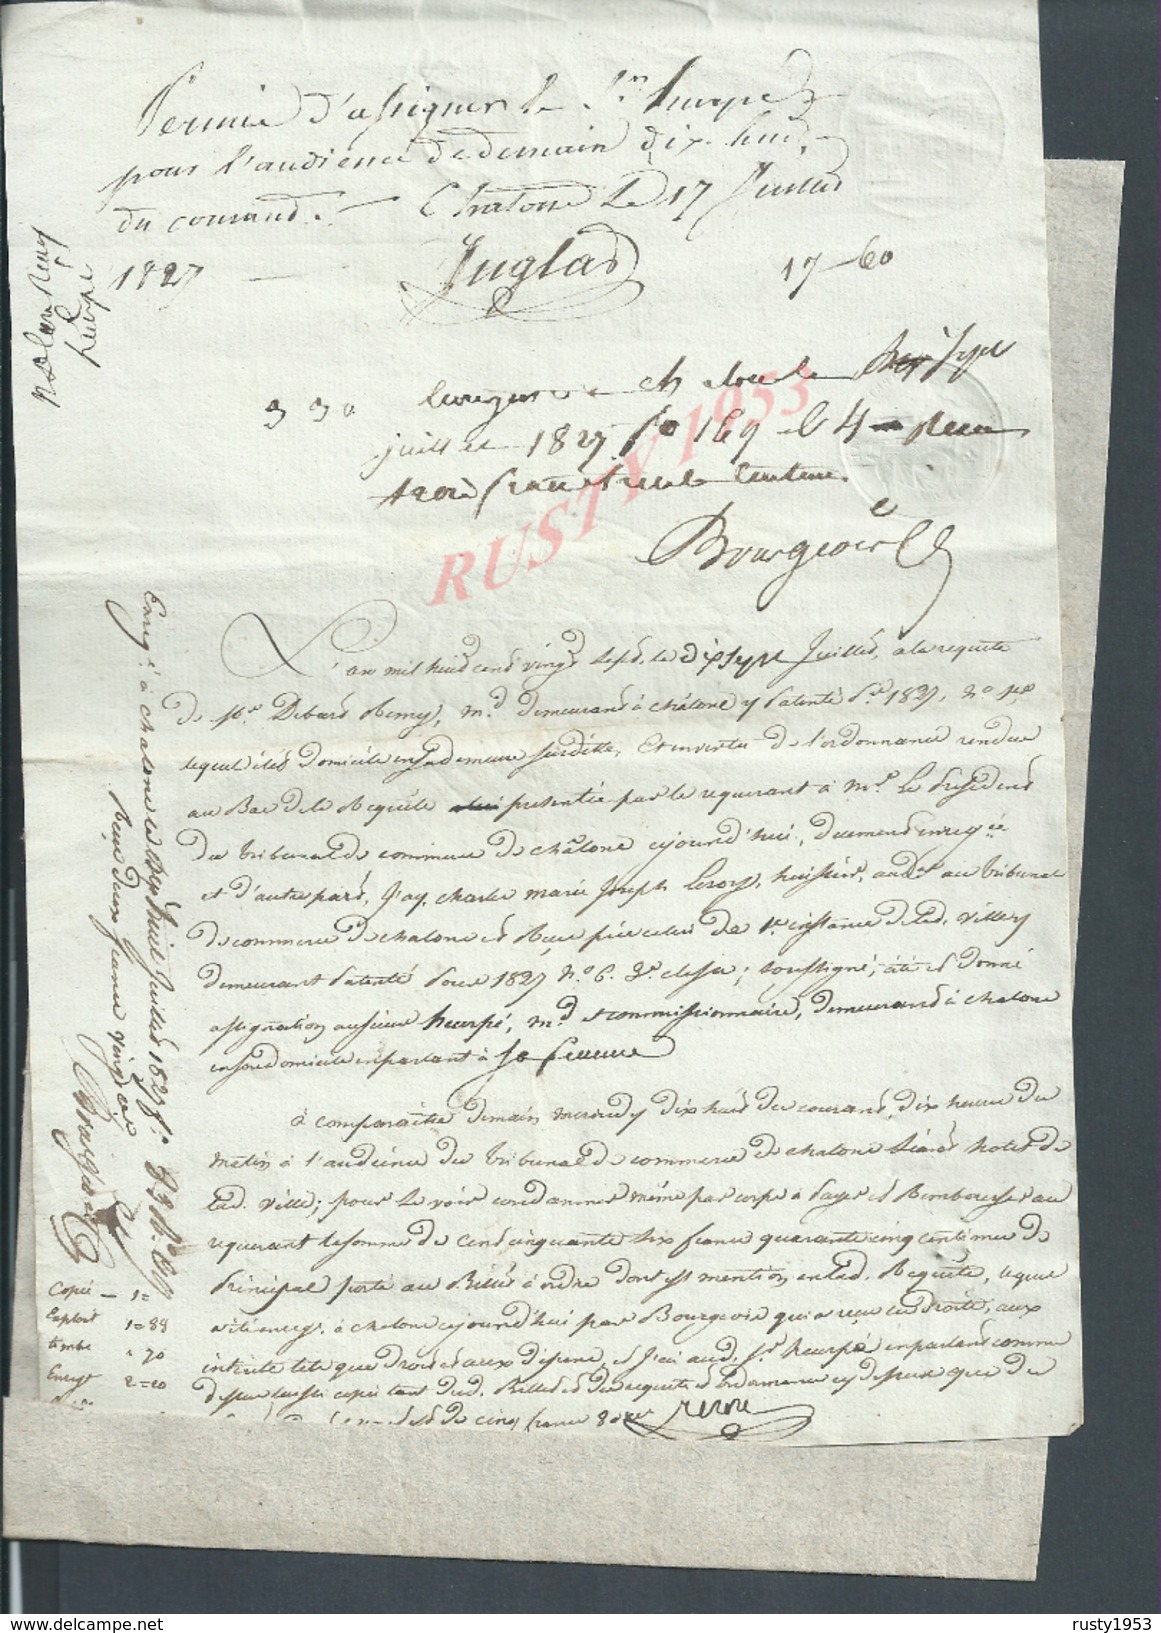 Permis d'assigner le Sr. heurpé
pour l'audience de demain dix-huit
du courant. Chalons le 17 Juillet
1827
Juglar
17-60
3 30
Enregistré à chalons le dix sept
juillet 1827 fo 169 c 4 Recu
trois francs trente centimes.
Bourgeois
L'an mil huit cent vingt sept, le dix sept Juillet, a la requete
de Mr. Debard Remy, md. demeurant à châlons y patenté pr. 1827, No
lequel élit domicile en sa demeure susditte, Et en vertu de l'ordonnance rendue
au Bas de la Requête presentée par le requerant à Mr. le President
du tribunal de commerce de châlons cejourd'hui, duement enregée.
et d'autre part, J'ay, Charles marie Joseph Leroy, huissier, audr. au tribunal
de commerce de chalons et Recu près celui de 1re instance de lad. ville y
demeurant patenté pour 1827 No. 6. 3e. classe; soussigné, été et donné
assignation au sieur heurpé, md. et commissionnaire, demeurant à chalons
en son domicile en parlant à sa femme
à comparaître demain mercredy dix huit du courant, dix heures du
matin à l'audience du tribunal de commerce de chalons séant hotel de
lad. ville; pour se voir condamner même par corps à payer et Rembourser au
requerant la somme de cent cinquante six francs quarante cinq centimes de
Principal porté au Billet à ordre dont est mention en lad. Requête, lequel
a été enreg. à chalons cejourd'hui par Bourgeois qui a reçu les droits, aux
intérêts tels que de droit et aux dépens, et J'ai aud. Sr. heurpé en parlant comme
dessus laissé copie tant dud. Billet et des requete et ordonnance cy dessus que du
de cinq francs 80
Leroy
Enrgé. à chalons le dix huit Juillet 1827 fo.
Recu deux francs vingt cmes
Bourgeois
Copie - 1=
Exploit 1=88
timbre " 70
Enregt 2=20
RUSTY 1953
delcampe.net
rusty1953